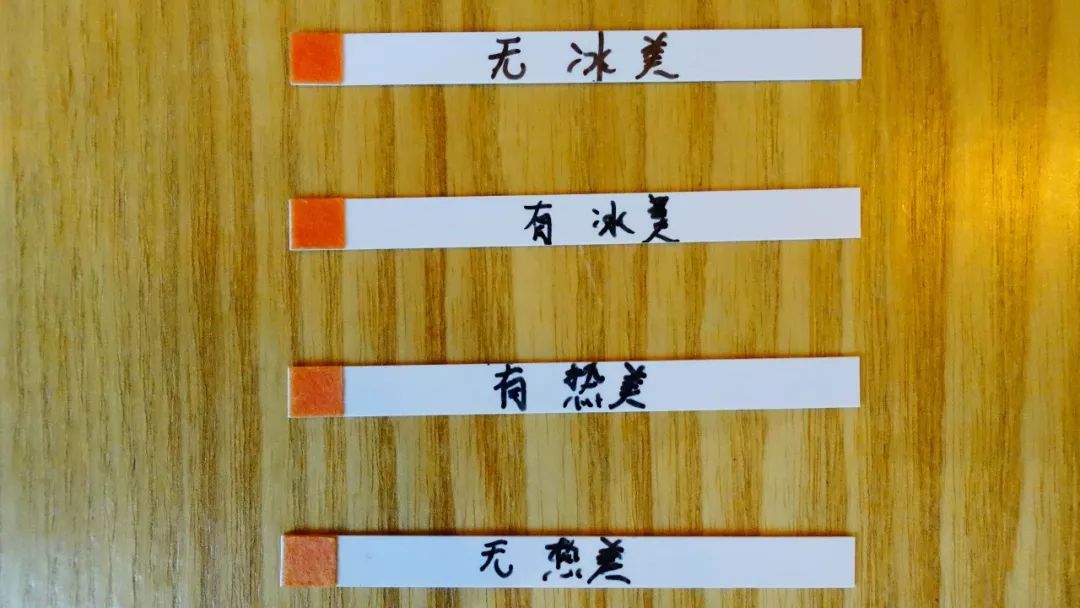 无 冰 美
有 冰 美
有 热 美
无 热 美